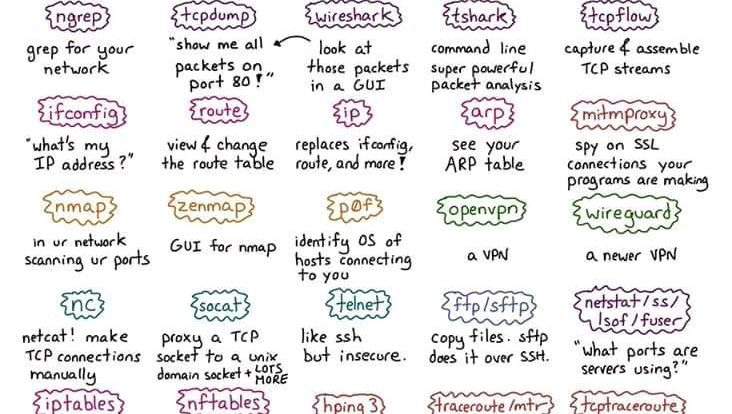 ngrep
grep for your
network
tcpdump
"show me all
packets on
port 80!"
wireshark
look at
those packets
in a GUI
tshark
command line
super powerful
packet analysis
tcpflow
capture & assemble
TCP streams
ifconfig
"what's my
IP address?"
route
view & change
the route table
ip
replaces ifconfig,
route, and more!
arp
see your
ARP table
mitmproxy
spy on SSL
connections your
programs are making
nmap
in ur network
scanning ur ports
zenmap
GUI for nmap
p0f
identify OS of
hosts connecting
to you
openvpn
a VPN
wireguard
a newer VPN
nc
netcat! make
TCP connections
manually
socat
proxy a TCP
socket to a unix
domain socket + LOTS
MORE
telnet
like ssh
but insecure.
ftp/sftp
copy files. sftp
does it over SSH.
netstat/ss/
lsof/fuser
"what ports are
servers using?"
iptables
nftables
hping3
traceroute/mtr
tcptraceroute